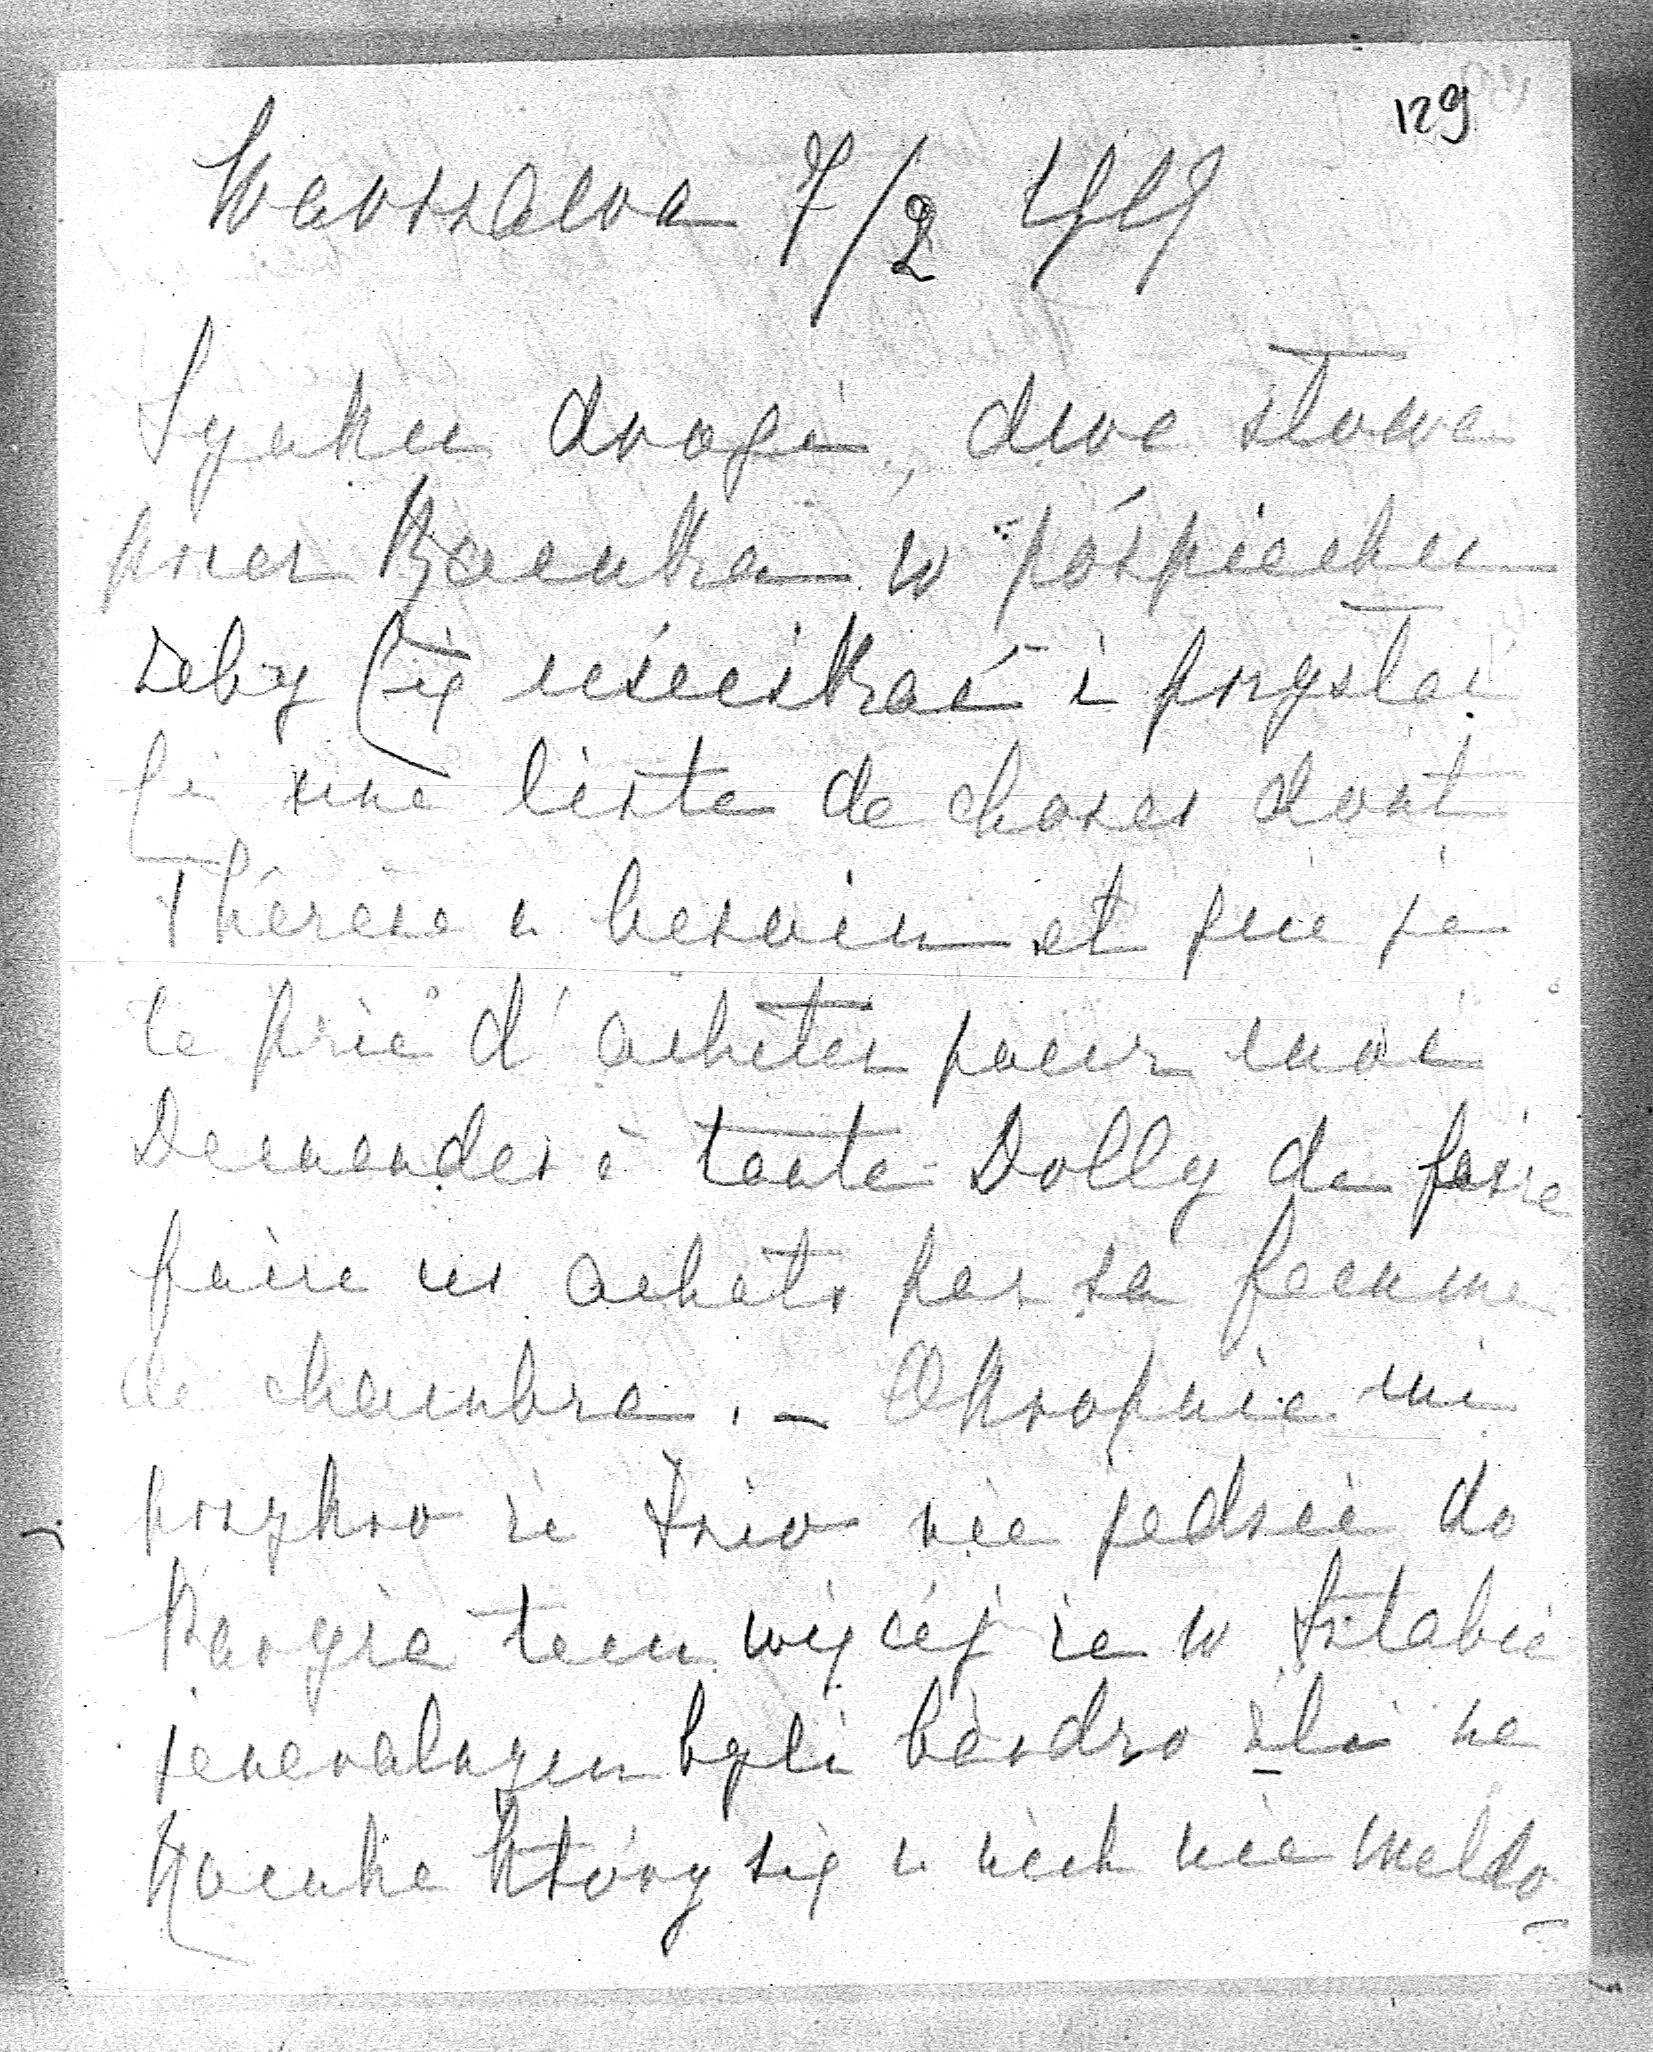 129
Warszawa 7/2 44
Synku drogi, dwa słowa
przez Romka w pośpiechu
żeby Cię uściskać i przysłać
Ci une liste de choses dont
Thérèse a besoin et que je
te prie d'acheter pour moi
Demandes à tante Dolly de faire
faire ces achats par sa femme
de chambre. – Okropnie mi
przykro że nie jedzie do
tem więcej że w Sztabie
jeneralnym byli bardzo źli na
który się u nich nie meldo-